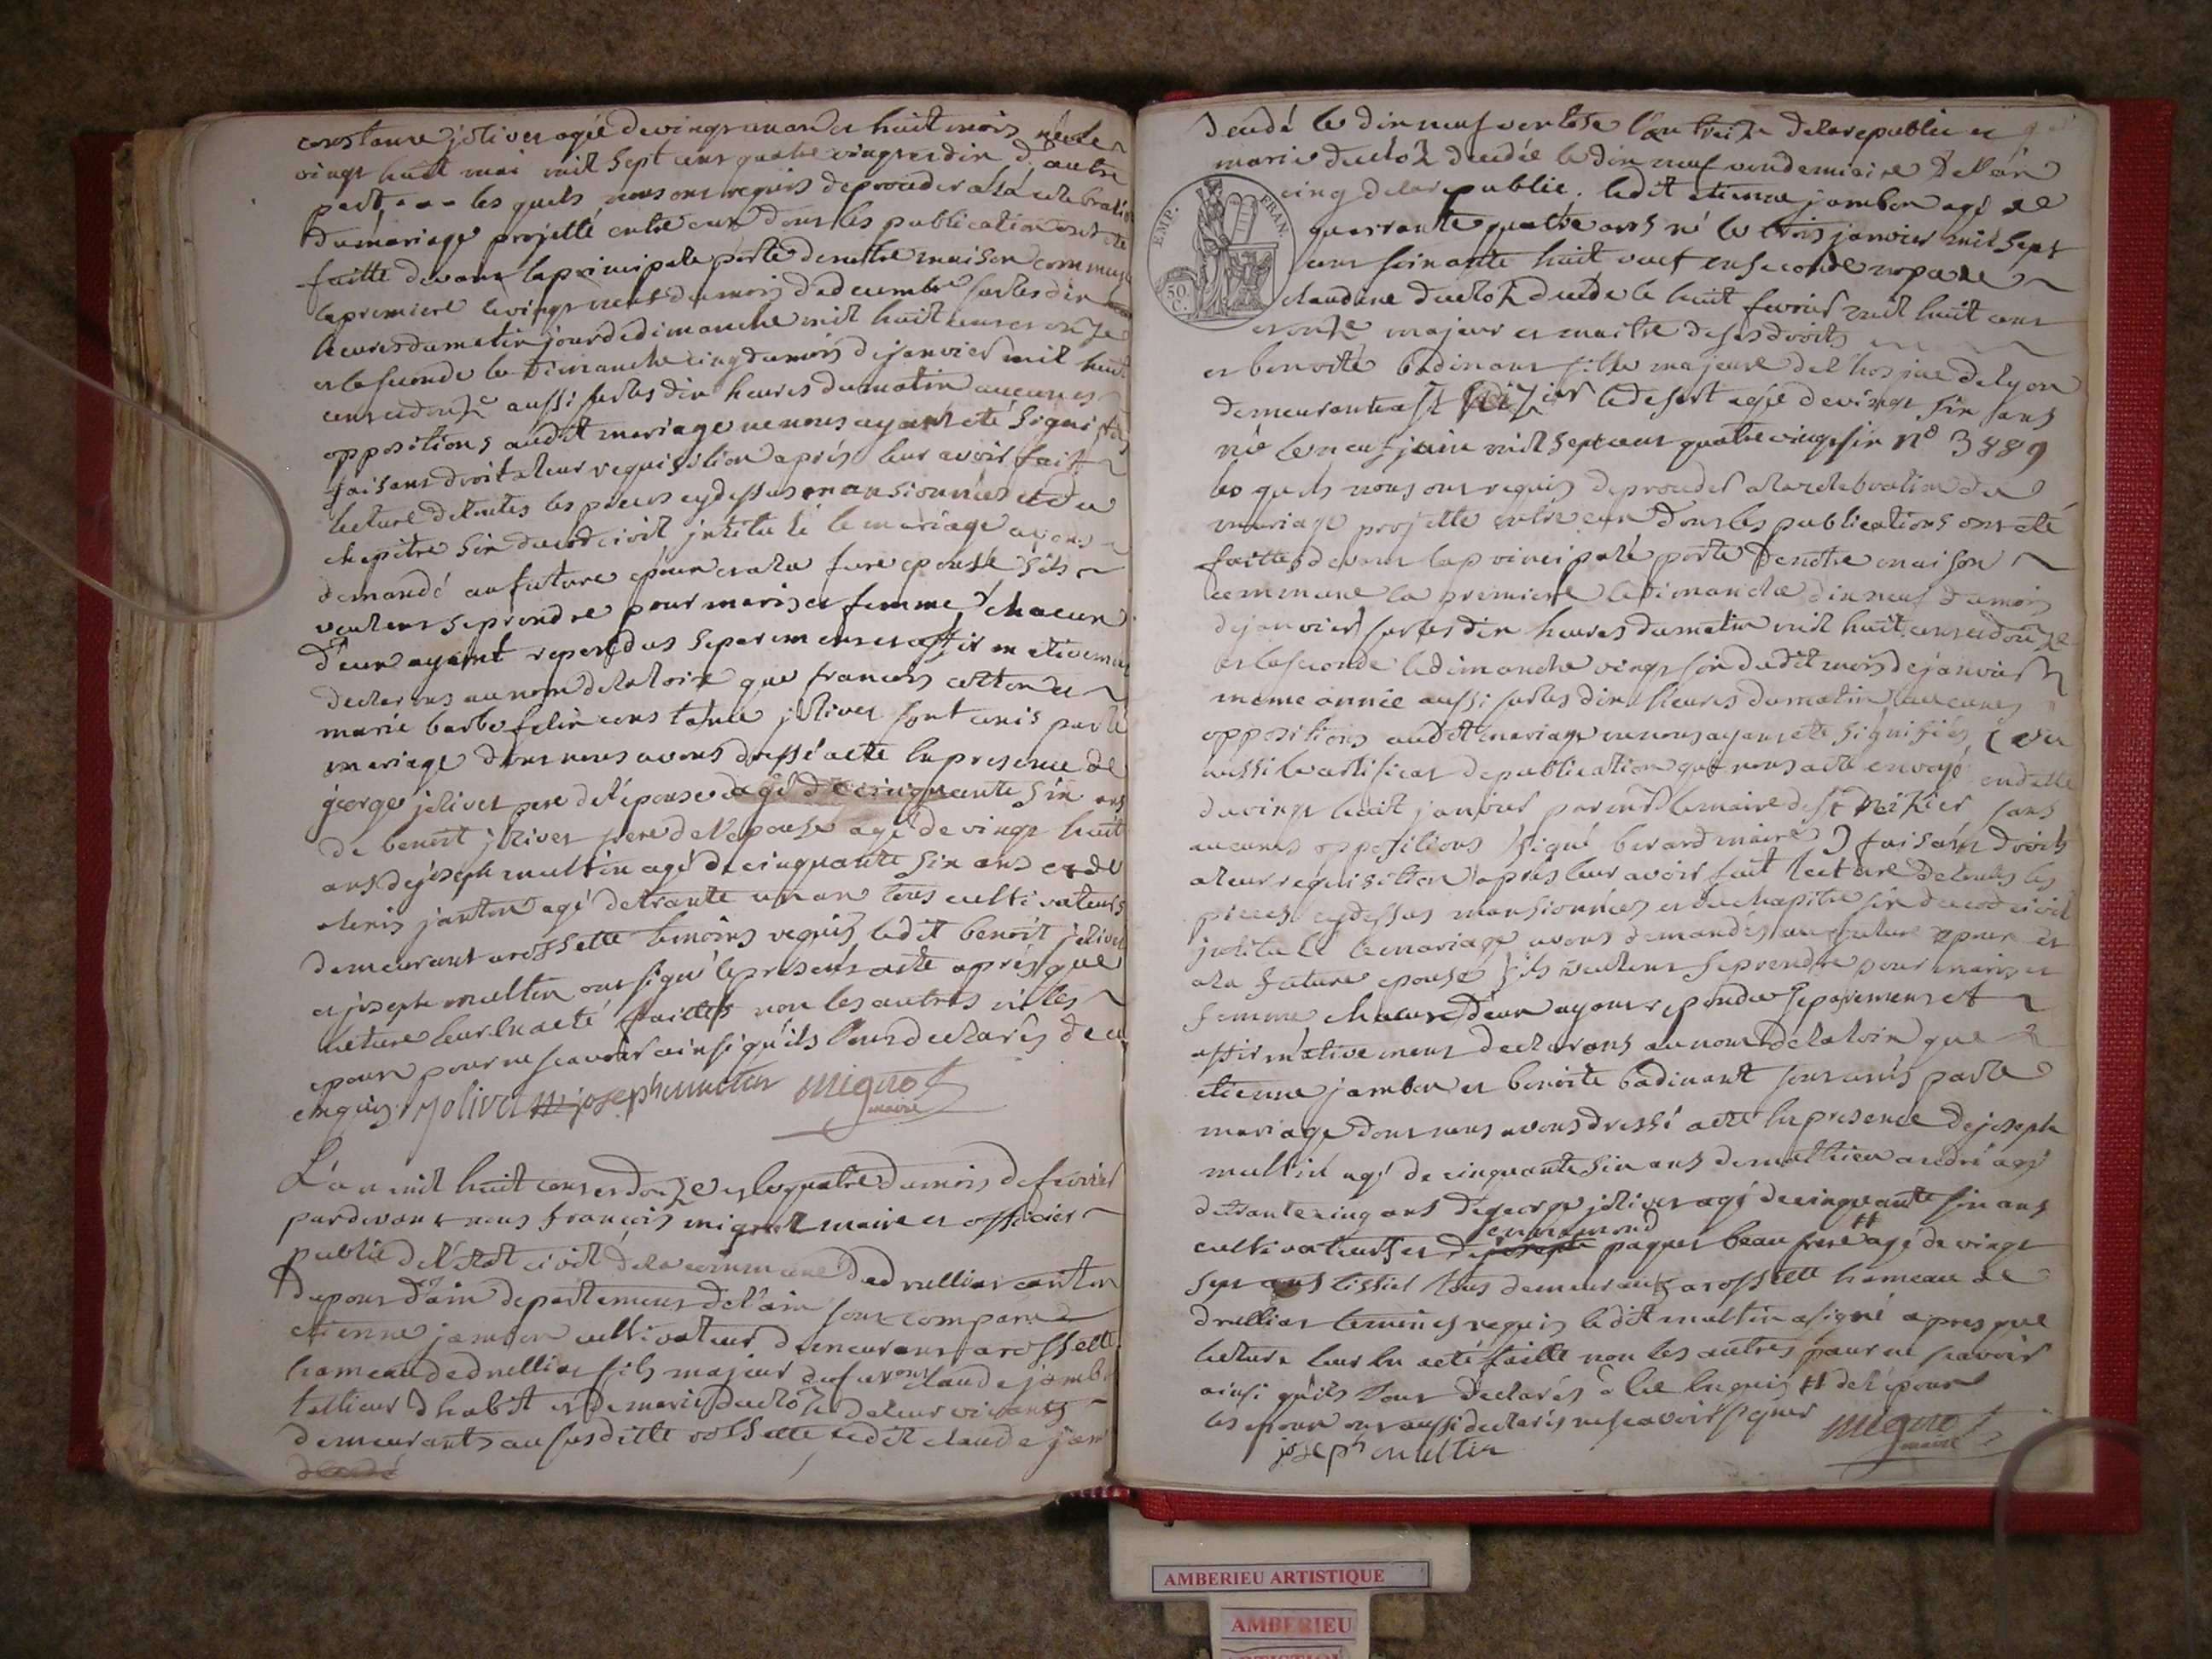 constance joliver agée de vingt un an et huit mois née le
vingt huit mai mil sept cent quatre vingt et dix d'autre
part les quels nous ont requis de proceder a la celebration
du mariage projetté entre eux dont les publications ont été
faitte devant la principale porte de notre maison commune
la premiere le vingt neuf du mois de decembre sur les dix
heures du matin jour de dimanche mil huit cent et onze
et la seconde le dimanche cinq du mois de janvier mil huit
cent et douze aussi sur les dix heures du matin aucunes
oppositions audit mariage ne nous ayant eté signifié
faisant droit a leur requisition aprés leur avoir fait
lecture de toutes les pieces cydessus mansionnées et du
chapitre six du cod civil intitulé le mariage avons
demandé au future epoux et a la future epouse s'ils
veulent se prendre pour maris et femme chacun
d'eux ayant repondus separement et affirmativement
declarons au nom de la loix que francois cotton et
marie barbe felix constance joliver sont unis par le
mariage dont nous avons dressé acte en presence de
george joliver pere de l'epouse agé de cinquante six ans
de benoit joliver frere de l'epouse agé de vingt huit
ans de joseph multin agé de cinquante six ans et de
denis janton agé de trante un an tous cultivateurs
demeurant a rossette temoins requis ledit benoit joliver
et joseph multin ont signé le present acte aprés que
lecture leur en a eté faittes non les autres ni les
epoux pour ne scavoir ainsi qu'ils l'ont declarés de ce
enquis. Joliver joseph multin mignot
maire
L'an mil huit cent et douze et le quatre du mois de fevrier
pardevant nous francois mignot maire et officier
public de l'état civil de la commune de druillias canton
du pont d'ain departement de l'ain sont comparu
etienne jambon cultivateur demeurant a rossette
hameau de druillias fils majeur de feu claude jambon
tallieur d'habit et de marie duclo de leur vivants
demeurants au susditte rossette ledit claude jam
décédé le dix neuf ventose l'an treize de la republic et
marie duclos decedée le dix neuf vendemiaire de l'an
cinq de la republic. ledit etienne jambon agé de
quarrante quatre ans né le trois janvier mil sept
cent soixante huit veuf en seconde nopce de
claudine duclos decedé le huit fevrier mil huit cent
et onze majeur et maitre de ses droits
et benoite badinant fille majeure de l'hospice de lyon
demeurante a st nizier le desert agée de vingt six ans
né le neuf juin mil sept cent quatre vingt six n° 3889
les quels nous ont requis de proceder a la celebration du
mariage projetté entre eux dont les publications ont eté
faittes devant la principale porte de notre maison
commune la premiere le dimanche dix neuf du mois
de janvier sur les dix heures du matin mil huit cent et douze
et la seconde le dimanche vingt six dudit mois de janvier
meme année aussi sur les dix heures du matin aucunes
oppositions audit mariage ne nous ayant eté signifiés (vu
aussi le certificat de publication que nous a eté envoyé en datte
du vingt huit janvier par mr le maire de st nizier sans
aucunes oppositions signé berard maire) faisant droits
a leur requisition aprés leur avoir fait lecture de toutes les
pieces cydessus mansionnées et du chapitre six du cod civil
intitulé le mariage avons demandés au future epoux et
a la future epouse s'ils veulent se prendre pour maris et
femme chacun d'eux ayant repondu separement et
affirmativement declarons au nom de la loix que
etienne jambon et benoite badinant sont unis par le
mariage dont nous avons dressé acte en presence de joseph
multin agé de cinquante six ans de matthieu andré agé
de trante cinq ans de george joliver agé de cinquante six ans
ennemond
cultivateurs et de joseph paquet beau frere # agé de vingt
sept ans tissier tous demeurant a rossette hameau de
druillias temoins requis ledit multin a signé apres que
lecture leur en a eté faitte non les autres pour ne scavoir
ainsi qu'ils l'ont declarés de ce enquis # de l'epoux
les epoux ont aussi declarés ne scavoir signer mignot
maire
joseph multin
EMP. FRAN.
50 C.
AMBERIEU ARTISTIQUE
AMBERIEU
ARTISTIQUE